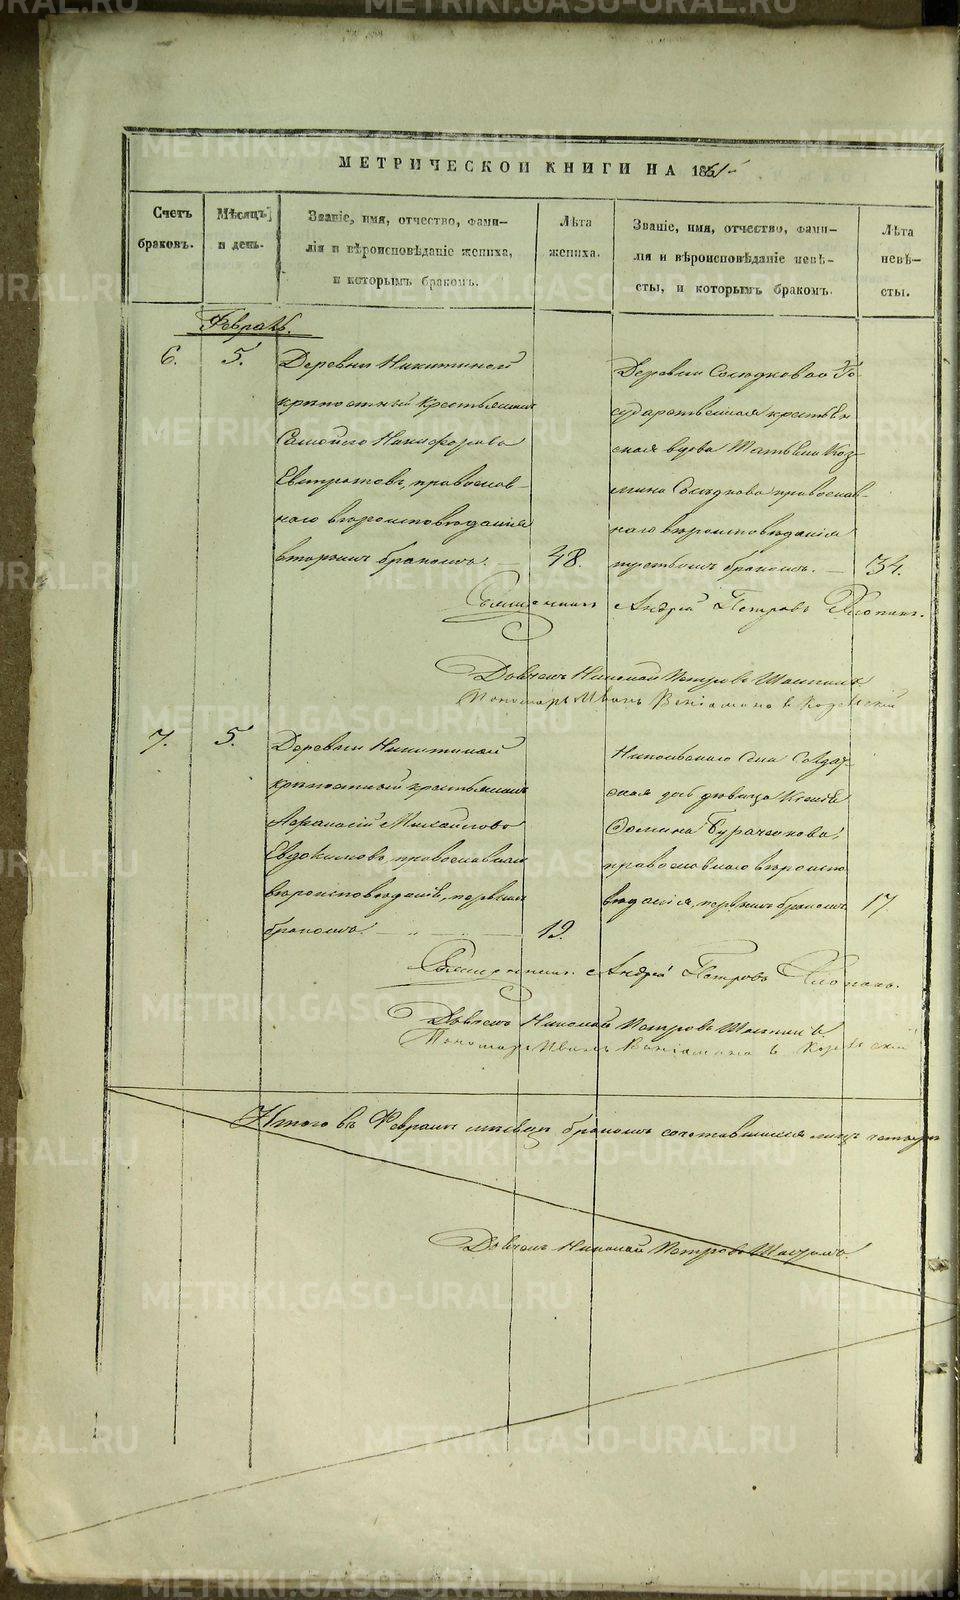 МЕТРИЧЕСКОЙ КНИГИ НА 1851
Счетъ
браковъ.
Мѣсяцъ
и день.
Званіе, имя, отчество, фами-
лія и вѣроисповѣданіе жениха,
и которымъ бракомъ.
Лѣта
жениха.
Званіе, имя, отчество, фами-
лія и вѣроисповѣданіе невѣ-
сты, и которымъ бракомъ.
Лѣта
невѣ-
сты.
Февраль.
6.
5.
Деревни Никитиной
крѣпостный крестьянинъ
Никифоровъ
православ-
наго вѣроисповѣданія
вторымъ бракомъ.
48.
Деревни Го-
сударственная крестьян-
ская вдова Татьяна Коз-
мина православ-
наго вѣроисповѣданія
третьимъ бракомъ.
34.
Священникъ Андрей Петровъ
Дьячекъ Николай Петровъ
Пономарь Иванъ
7.
5.
Деревни Никитиной
крѣпостный крестьянинъ
Афанасій Михайловъ
Евдокимовъ, православнаго
вѣроисповѣданія, первымъ
бракомъ.
19.
села Солдат-
ская дочь дѣвица Ксенія
Фомина
православнаго вѣроиспо-
вѣданія, первымъ бракомъ.
17.
Священникъ Андрей Петровъ
Дьячекъ Николай Петровъ
Пономарь Иванъ
Итого въ Февралѣ мѣсяцѣ бракомъ сочетавшихся лицъ четыре
Дьячекъ Николай Петровъ
METRIKI.GASO-URAL.RU